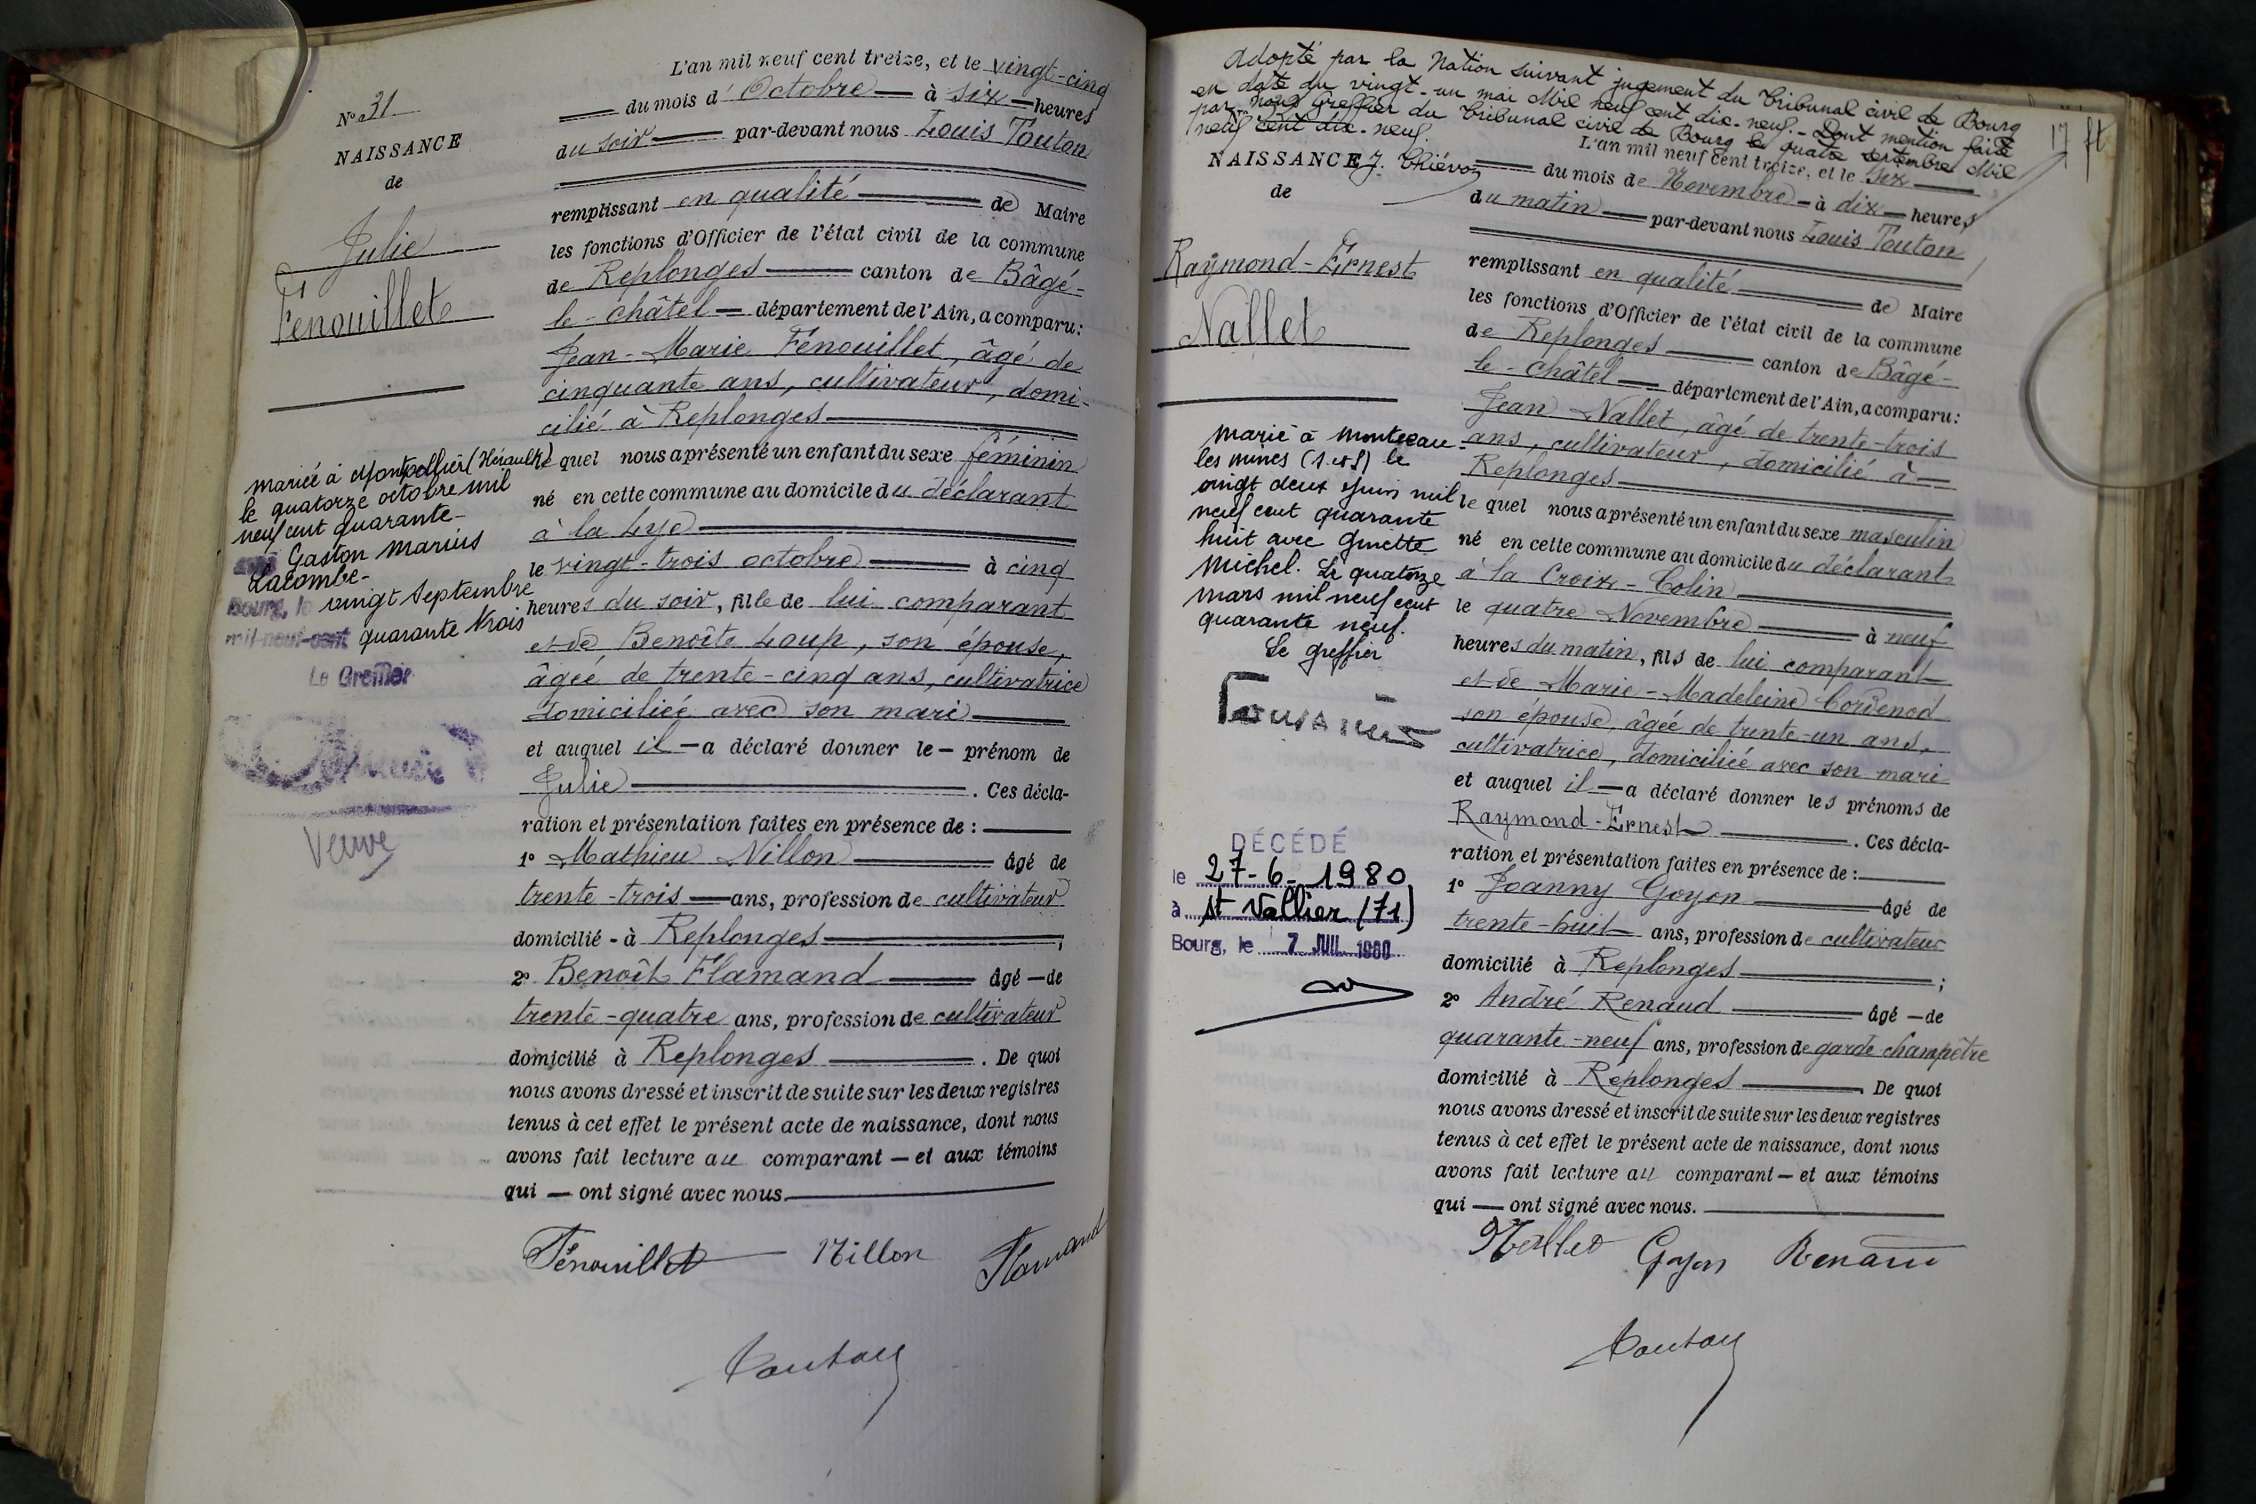 L'an mil neuf cent treize, et le vingt-cinq
du mois d'Octobre à six heures
du soir par-devant nous Louis Touton
remplissant en qualité de Maire
les fonctions d'Officier de l'état civil de la commune
de Replonges canton de Bâgé-
le-châtel département de l'Ain, a comparu:
Jean-Marie Fénouillet, âgé de
cinquante ans, cultivateur, domi-
cilié à Replonges
lequel nous a présenté un enfant du sexe féminin
né en cette commune au domicile du déclarant
à la Lye
le vingt-trois octobre à cinq
heures du soir, fille de lui comparant
et de Benoîte Loup, son épouse,
âgée de trente-cinq ans, cultivatrice
domiciliée avec son mari
et auquel il a déclaré donner le prénom de
Julie. Ces décla-
ration et présentation faites en présence de :
1° Mathieu Nillon âgé de
trente-trois ans, profession de cultivateur
domicilié à Replonges;
2° Benoît Flamand âgé de
trente-quatre ans, profession de cultivateur
domicilié à Replonges. De quoi
nous avons dressé et inscrit de suite sur les deux registres
tenus à cet effet le présent acte de naissance, dont nous
avons fait lecture au comparant et aux témoins
qui ont signé avec nous.
Fénouillet Nillon Flamand
Touton
N° 31
NAISSANCE
de
Julie
Fénouillet
Mariée à Montpellier (Hérault)
le quatorze octobre mil
neuf cent quarante
avec Gaston Marius
Lacombe-
Bourg, le vingt septembre
mil-neuf-cent quarante trois
Le Greffier
Veuve
Adopté par la Nation suivant jugement du Tribunal civil de Bourg
en date du vingt-un mai Mil neuf cent dix-neuf.- Dont mention faite
par nous Greffier du Tribunal civil de Bourg le quatre septembre Mil
neuf cent dix-neuf.
17 ft
NAISSANCE
J. Thiévoz
de
Raymond-Ernest
Nallet
Marié à Montceau-
les mines (S. et L) le
vingt deux Juin mil
neuf cent quarante
huit avec Ginette
Michel. Le quatorze
mars mil neuf cent
quarante neuf.
Le greffier
DÉCÉDÉ
le 27-6-1980
à St Vallier (71)
Bourg, le 7 JUIL. 1980
L'an mil neuf cent treize, et le six
du mois de Novembre à dix heures
du matin par-devant nous Louis Touton
remplissant en qualité de Maire
les fonctions d'Officier de l'état civil de la commune
de Replonges canton de Bâgé-
le-châtel département de l'Ain, a comparu:
Jean Nallet, âgé de trente-trois
ans, cultivateur, domicilié à
Replonges
lequel nous a présenté un enfant du sexe masculin
né en cette commune au domicile du déclarant
à la Croix-Colin
le quatre Novembre à neuf
heures du matin, fils de lui comparant
et de Marie-Madeleine Cordenod
son épouse, âgée de trente-un ans,
cultivatrice, domiciliée avec son mari
et auquel il a déclaré donner les prénoms de
Raymond-Ernest. Ces décla-
ration et présentation faites en présence de :
1° Joanny Goyon âgé de
trente-huit ans, profession de cultivateur
domicilié à Replonges;
2° André Renaud âgé de
quarante-neuf ans, profession de garde champêtre
domicilié à Replonges. De quoi
nous avons dressé et inscrit de suite sur les deux registres
tenus à cet effet le présent acte de naissance, dont nous
avons fait lecture au comparant et aux témoins
qui ont signé avec nous.
Nallet Goyon Renaud
Touton